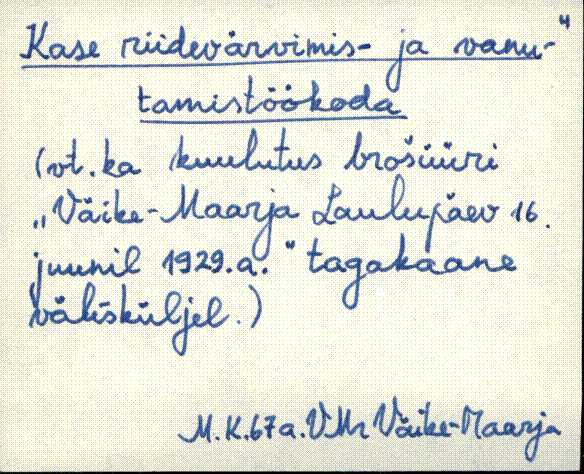 4
Kase riidevärvimis- ja vanu-
tamistöökoda
(vt. ka kuulutus brošüüri
„Väike-Maarja Laulupäev 16.
juunil 1929.a." tagakaane
välisküljel.)
M.K. 67 a. VMr Väike-Maarja